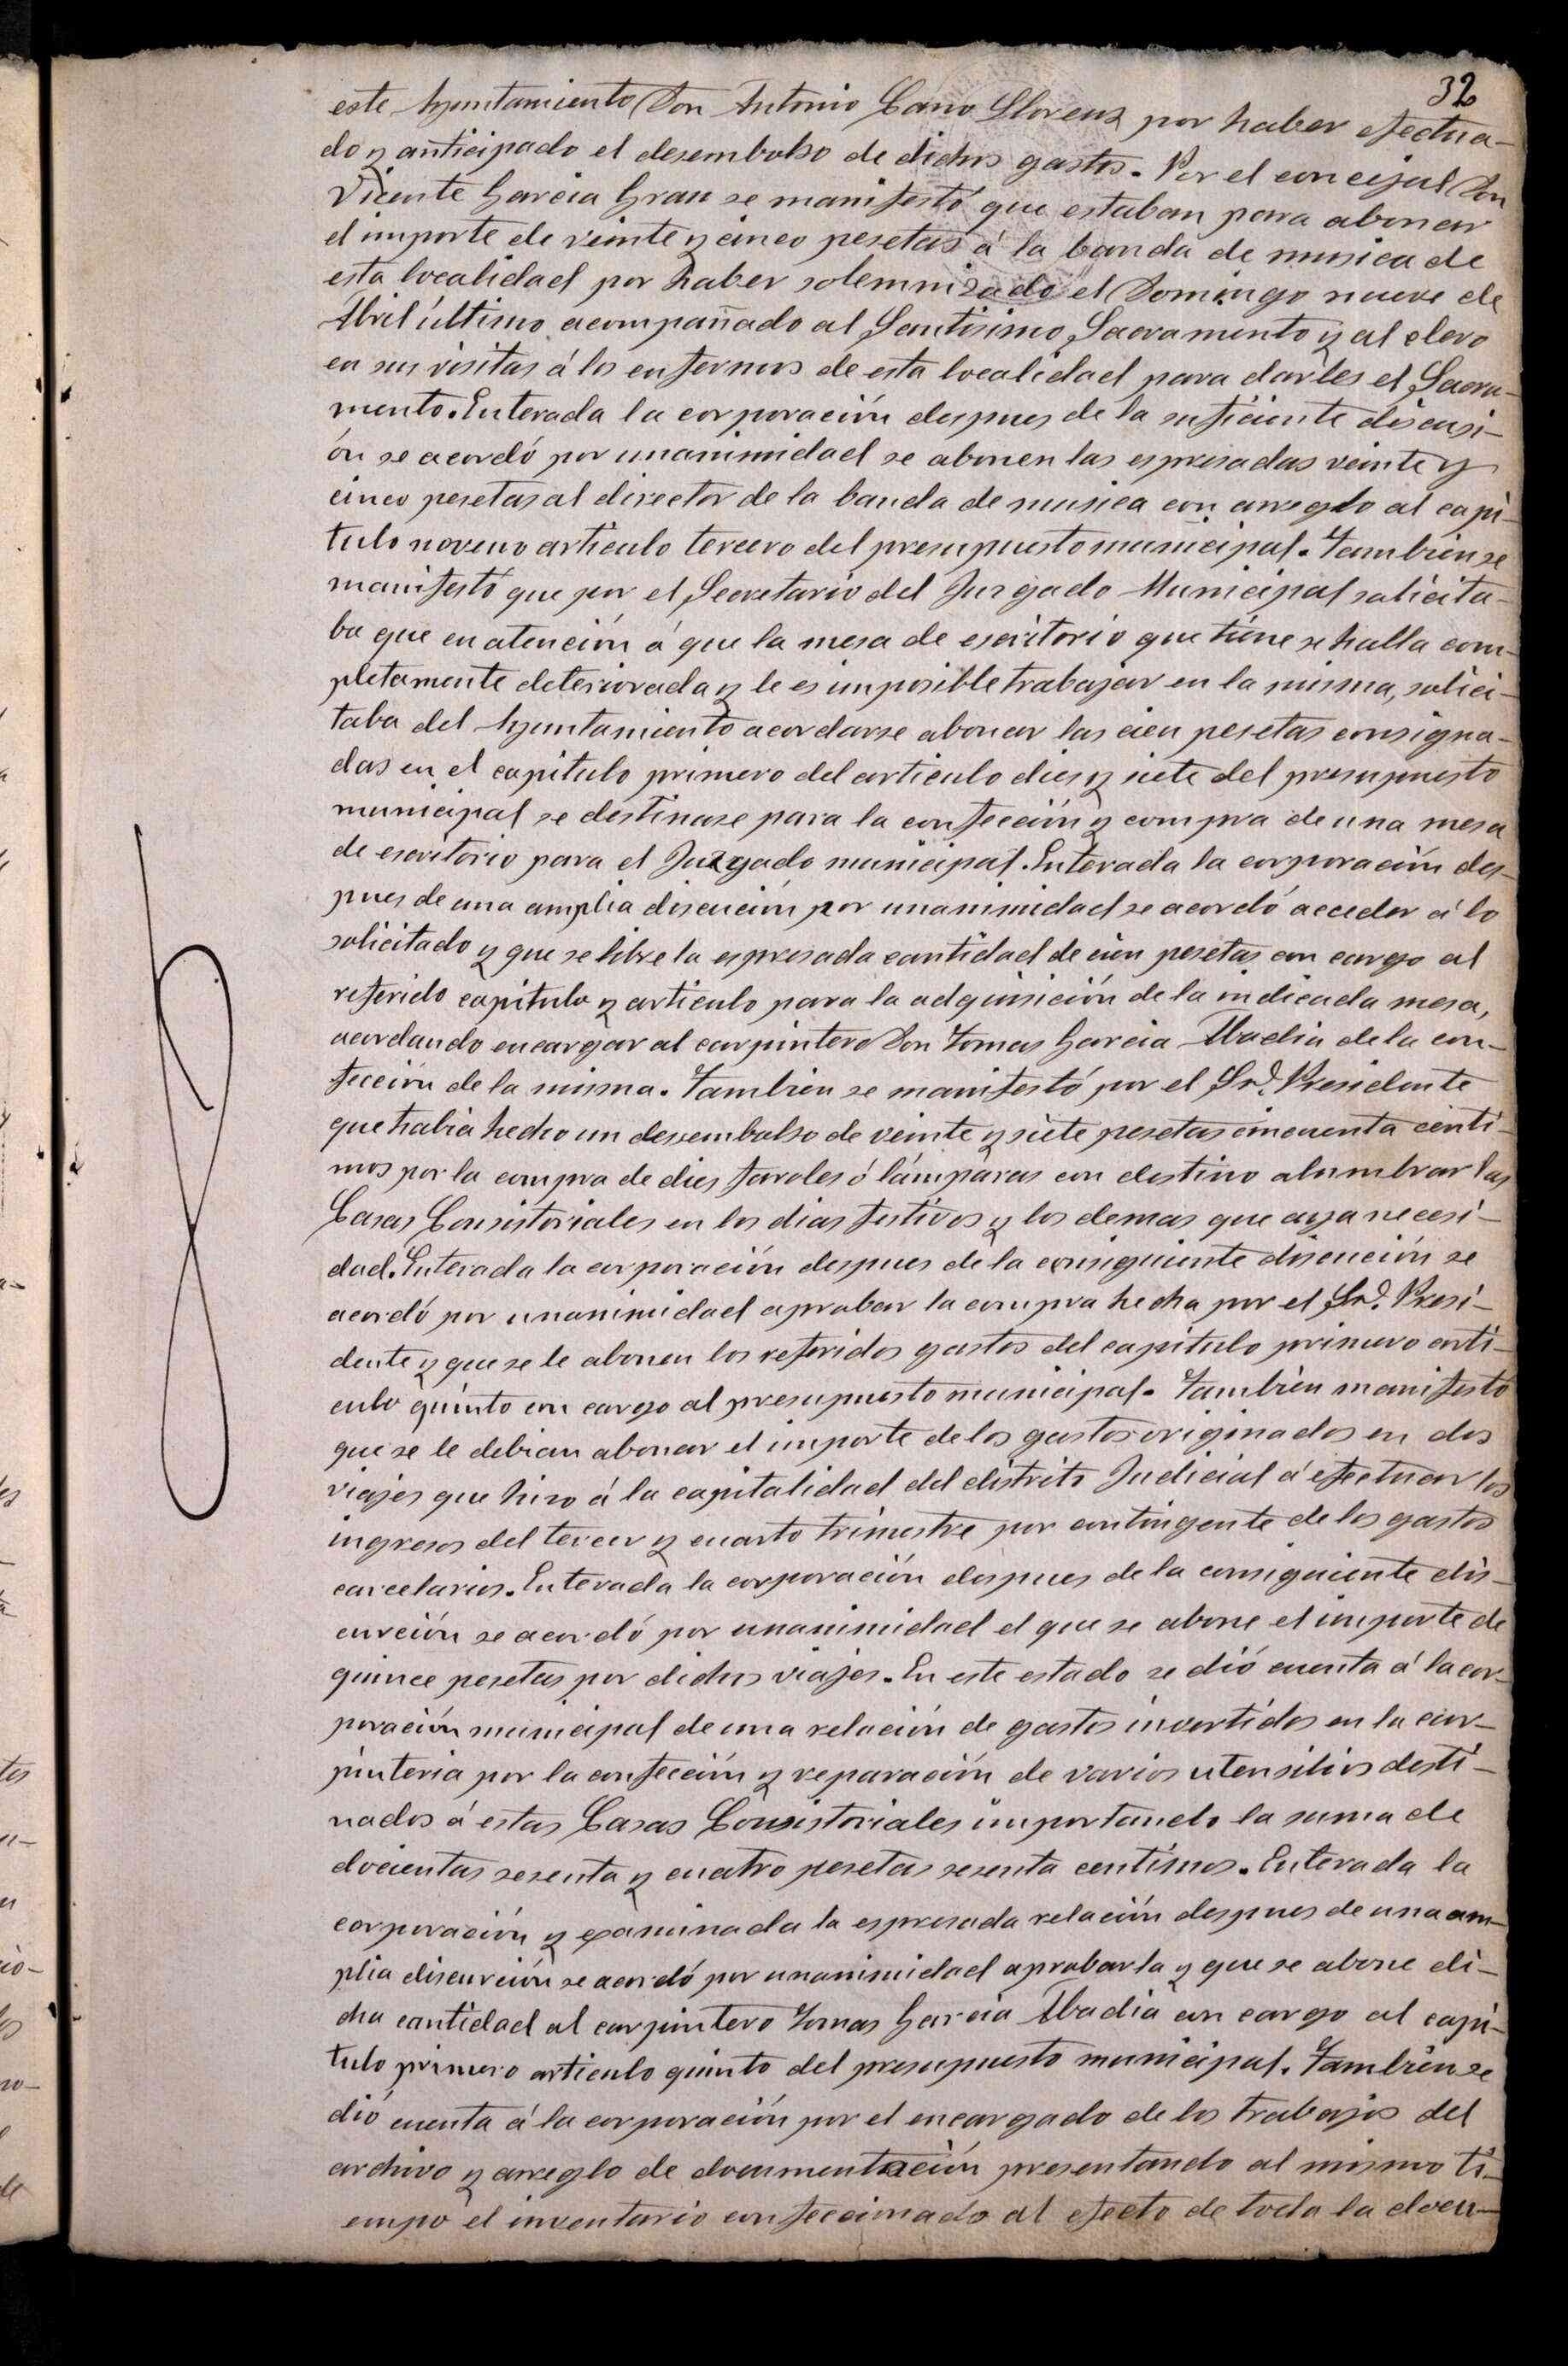 32
este Ayuntamiento Don Antonio Cano Llorens por haber efectua-
do y anticipado el desembolso de dichos gastos. Por el concejal Don
Vicente Garcia Grau se manifestó que estaban para abonar
el importe de veinte y cinco pesetas á la banda de musica de
esta localidad por haber solemnizado el Domingo nueve de
Abril último acompañado al Santisimo Sacramento y al clero
en sus visitas á los enfermos de esta localidad para darles el Sacra-
mento. Enterada la corporación despues de la suficiente discusi-
ón se acordó por unanimidad se abonen las espresadas veinte y
cinco pesetas al director de la banda de musica con arreglo al capi-
tulo noveno articulo tercero del presupuesto municipal. Tambien se
manifestó que por el Secretario del Juzgado Municipal solicita-
ba que en atención á que la mesa de escritorio que tiene se halla com-
pletamente deteriorada y le es imposible trabajar en la misma, solici-
taba del Ayuntamiento acordarse abonar las cien pesetas consigna-
das en el capitulo primero del articulo dies y siete del presupuesto
municipal se destinase para la confección y compra de una mesa
de escritorio para el Juzgado municipal. Enterada la corporación des-
pues de una amplia discución por unanimidad se acordó acceder á lo
solicitado y que se libre la espresada cantidad de cien pesetas con cargo al
referido capitulo y articulo para la adquisición de la indicada mesa,
acordando encargar al carpintero Don Tomas Garcia Abadia de la con-
fección de la misma. Tambien se manifestó por el Sr. Presidente
que habia hecho un desembolso de veinte y siete pesetas cincuenta centi-
mos por la compra de dies faroles ó lámparas con destino alumbrar las
Casas Consistoriales en los dias festivos y los demas que aya necesi-
dad. Enterada la corporación despues de la consiguiente discución se
acordó por unanimidad aprobar la compra hecha por el Sr. Presi-
dente y que se le abonen los referidos gastos del capitulo primero arti-
culo quinto con cargo al presupuesto municipal. Tambien manifestó
que se le debian abonar el importe de los gastos originados en dos
viajes que hizo á la capitalidad del distrito Judicial á efectuar los
ingresos del tercer y cuarto trimestre por contingente de los gastos
carcelarios. Enterada la corporación despues de la consiguiente dis-
curción se acordó por unanimidad el que se abone el importe de
quince pesetas por dichos viajes. En este estado se dió cuenta á la cor-
poración municipal de una relación de gastos invertidos en la car-
pinteria por la confección y reparación de varios utensilios desti-
nados á estas Casas Consistoriales importando la suma de
docientas sesenta y cuatro pesetas sesenta centimos. Enterada la
corporación y examinada la espresada relación despues de una am-
plia discurción se acordó por unanimidad aprobarla y que se abone di-
cha cantidad al carpintero Tomas Garcia Abadia con cargo al capi-
tulo primero articulo quinto del presupuesto municipal. Tambien se
dió cuenta á la corporación por el encargado de los trabajos del
archivo y arreglo de documentación presentando al mismo ti-
empo el inventario confeccionado al efecto de toda la docu-